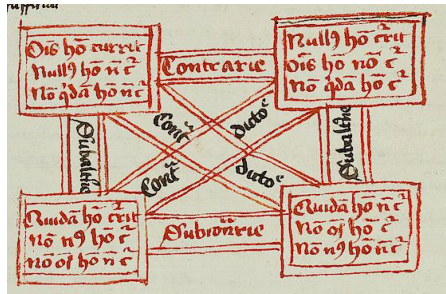 Oīs hō currit
Null9 hō n̄ c̄
Nō q̇dā hō n̄ c̄
Contrarie
Null9 hō c̄rit
Oīs hō nō c̄
Nō q̇dā hō c̄
Subalt̄ne
Cont̄
dictoᵉ
Cont̄
dictoᵉ
Subalt̄ne
Quidā hō c̄rit
Nō n9 hō c̄
Nō oīs hō n̄ c̄
Subcōntrie
Quidā hō n̄ c̄
Nō oīs hō c̄
Nō n9 hō n̄ c̄